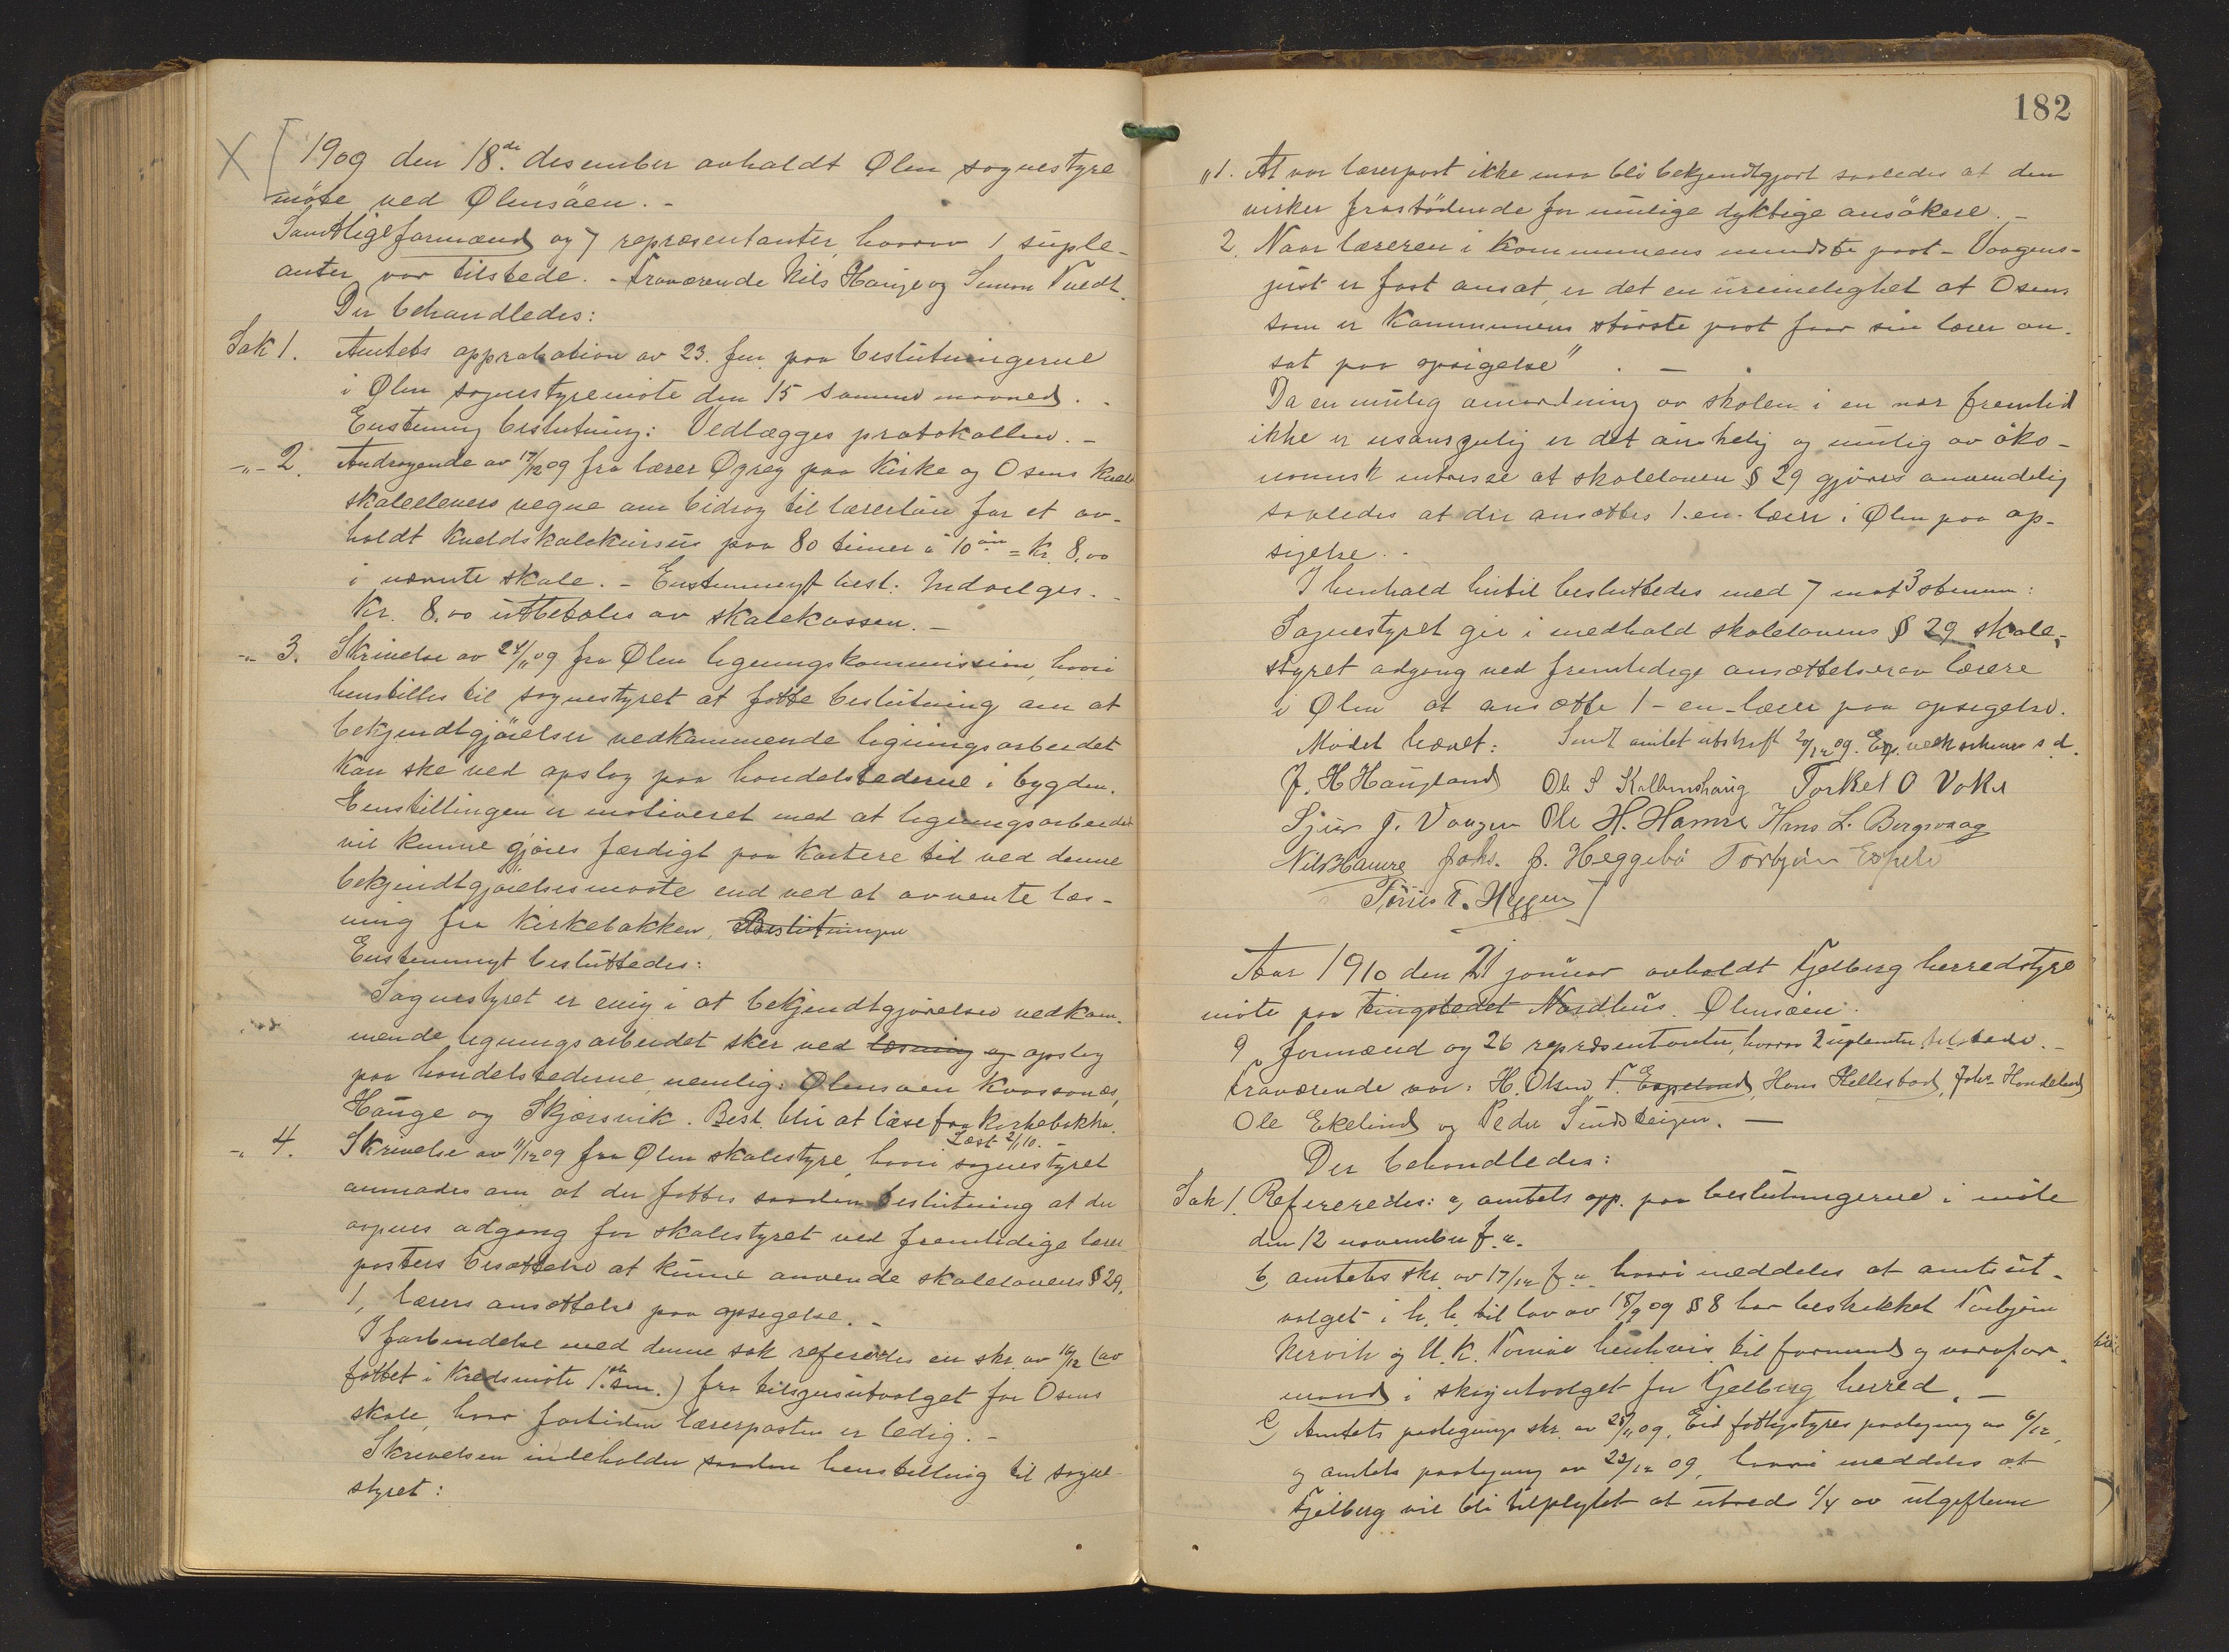 1909 den 18.de desember avholdt Ølen sognestyre
møte ved Ølensöen. -
Samtlige formænd og 7 repræsentanter, hvorav 1 suple-
anter, var tilstede. - Fraværende Nils Hauge og Simon Tvedt.
Der behandledes:
Sak 1. Amtets approbation av 23. f.m. paa beslutningerne
i Ølen sognestyremöte den 15 samme maaned. -
Enstemmig beslutning: Vedlægges protokollen. -
-„- 2. Andragende av 17/12 09 fra lærer Øgrey paa Kirke og Osens kveld
skoleelevers vegne om bidrag til lærerløn for et av-
holdt kveldskolekursus paa 80 timer à 10 øre = kr. 8,00
i nævnte skole. - Enstemmigt besl: Indvilges. -
Kr. 8,00 utbetales av skolekassen. -
-„- 3. Skrivelse av 24/11 09 fra Ølen ligningskommission, hvori
henstilles til sognestyret at fatte beslutning om at
bekjendtgjörelser vedkommende ligningsarbeidet
kan ske ved opslag paa handelstederne i bygden.
Henstillingen er motiveret med at ligningsarbeidet
vil kunne gjøres færdigt paa kortere tid ved denne
bekjendtgjørelsesmaate end ved at avvente læs-
ning fra kirkebakken, Beslutningen
Enstemmigt besluttedes:
Sognestyret er enig i at bekjendtgjørelser vedkom-
mende ligningsarbeidet sker ved læsning og opslag
paa handelstederne nemlig: Ølensøen Kvassnæs,
Hauge og Skjærsvik. Besl. blir at læse fra kirkebakken.
Læst 2/1 10. -
-„- 4. Skrivelse av 11/12 09 fra Ølen skolestyre, hvori sognestyret
anmodes om at der fattes saadan beslutning at der
aapnes adgang for skolestyret ved fremtidige lærer-
posters besættelse at kunne anvende skolelovens § 29,
1, lærers ansættelse paa opsigelse. -
I forbindelse med denne sak refereredes en skr. av 16/12 (av
fattet i kredsmöte s.m.) fra tilsynsutvalget for Osens
skole, hvor fortiden lærerposten er ledig. -
Skrivelsen indeholder saadan henstilling til sogne-
styret:
182
„1. At vor lærerpost ikke maa bli bekjendtgjort saaledes at den
virker frastödende for mulige dyktige ansökere. -
2. Naar læreren i kommunens mindste post - Vaagens -
just er fast ansat, er det en urimelighet at Osens
som er kommunens störste post faar sin lærer an-
sat paa opsigelse". -
Da en mulig omordning av skolen i en nær fremtid
ikke er usansynlig er det önskelig og mulig av öko-
nomisk intresse at skoleloven § 29 gjöres anvendelig
saaledes at der ansættes 1 - en - lærer i Ølen paa op-
sigelse. -
I henhold hertil besluttedes med 7 mot 3 stemmer:
Sognestyret gir i medhold skolelovens § 29 skole-
styret adgang ved fremtidige ansættelser av lærere
i Ølen at ansætte 1 - en - lærer paa opsigelse.
Mødet hævet: Sendt amtet utskrift 20/12 09. s.d.
J. H Haugland Ole S Kalvenshaug Torkel O Voke
Sjur J. Vaagen Ole H. Hamre Hans L. Bergsvaag
Nils Hamre Johs. J. Heggebö Torbjørn Espeli
T. Heggen
Aar 1910 den 21 januar avholdt Fjelberg herredstyre
möte paa tingstedet Nordhus. Ølensöen.
9 formænd og 26 repræsentanter, hvorav 2 suplanter tilstede. -
Fraværende var: H. Olsen, T. Espeland, Hans Hellestad, Johs. Handeland
Ole Ekelund og Peder Sundsteigen. -
Der behandledes:
Sak 1. Refereredes: a, amtets app. paa beslutningerne i möte
den 12 november f. a.
b, amtets skr. av 17/12 f. a. hvori meddeles at amtsut-
valget i h. h. til lov av 18/9 09 § 8 har beskikket Torbjörn
Nervik og U. K. Tornæs henhvis. til formand og varafor-
mand i skogutvalget for Fjelberg herred. -
c, Amtets paategnings skr. av 25/11 09, Eid fattigstyres paategning av 6/12,
og amtets paategning av 22/12 09, hvori meddeles at
Fjelberg vil bli tilpligtet at utrede 1/4 av utgifterne